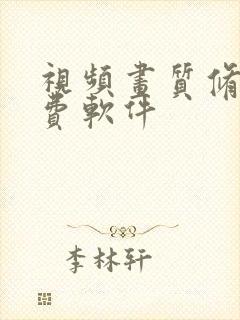 視頻畫質修
費軟件
李林軒